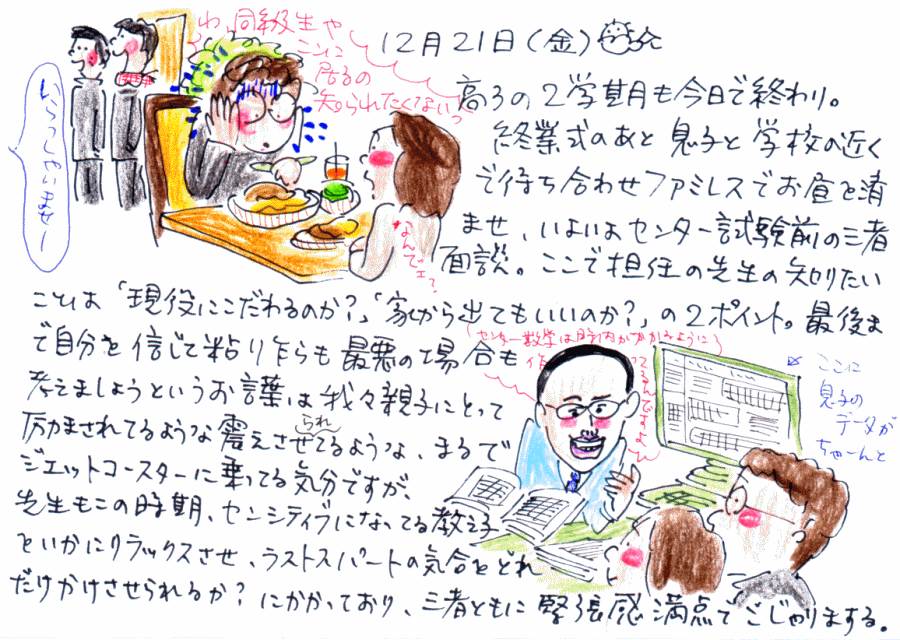 12月21日(金)
わ、同級生や
ここに
居るの
知られたくないっ
いらっしゃいませー
なんでェ?
高3の2学期も今日で終わり。
終業式のあと息子と学校の近く
で待ち合わせファミレスでお昼を済
ませ、いよいよセンター試験前の三者
面談。ここで担任の先生の知りたい
ことは「現役にこだわるのか?」「家から出てもいいのか?」の2ポイント。最後ま
で自分を信じて粘り乍らも最悪の場合も
考えましょうというお言葉は我々親子にとって
励まされてるような震えさせられてるような、まるで
ジェットコースターに乗ってる気分ですが、
先生もこの時期、センシティブになってる教え子
といかにリラックスさせ、ラストスパートの気合をどれ
だけかけさせられるか?にかかっており、三者ともに緊張感満点でごじゃりまする。
センター数学は
ここに
息子の
データが
ちゃーんと